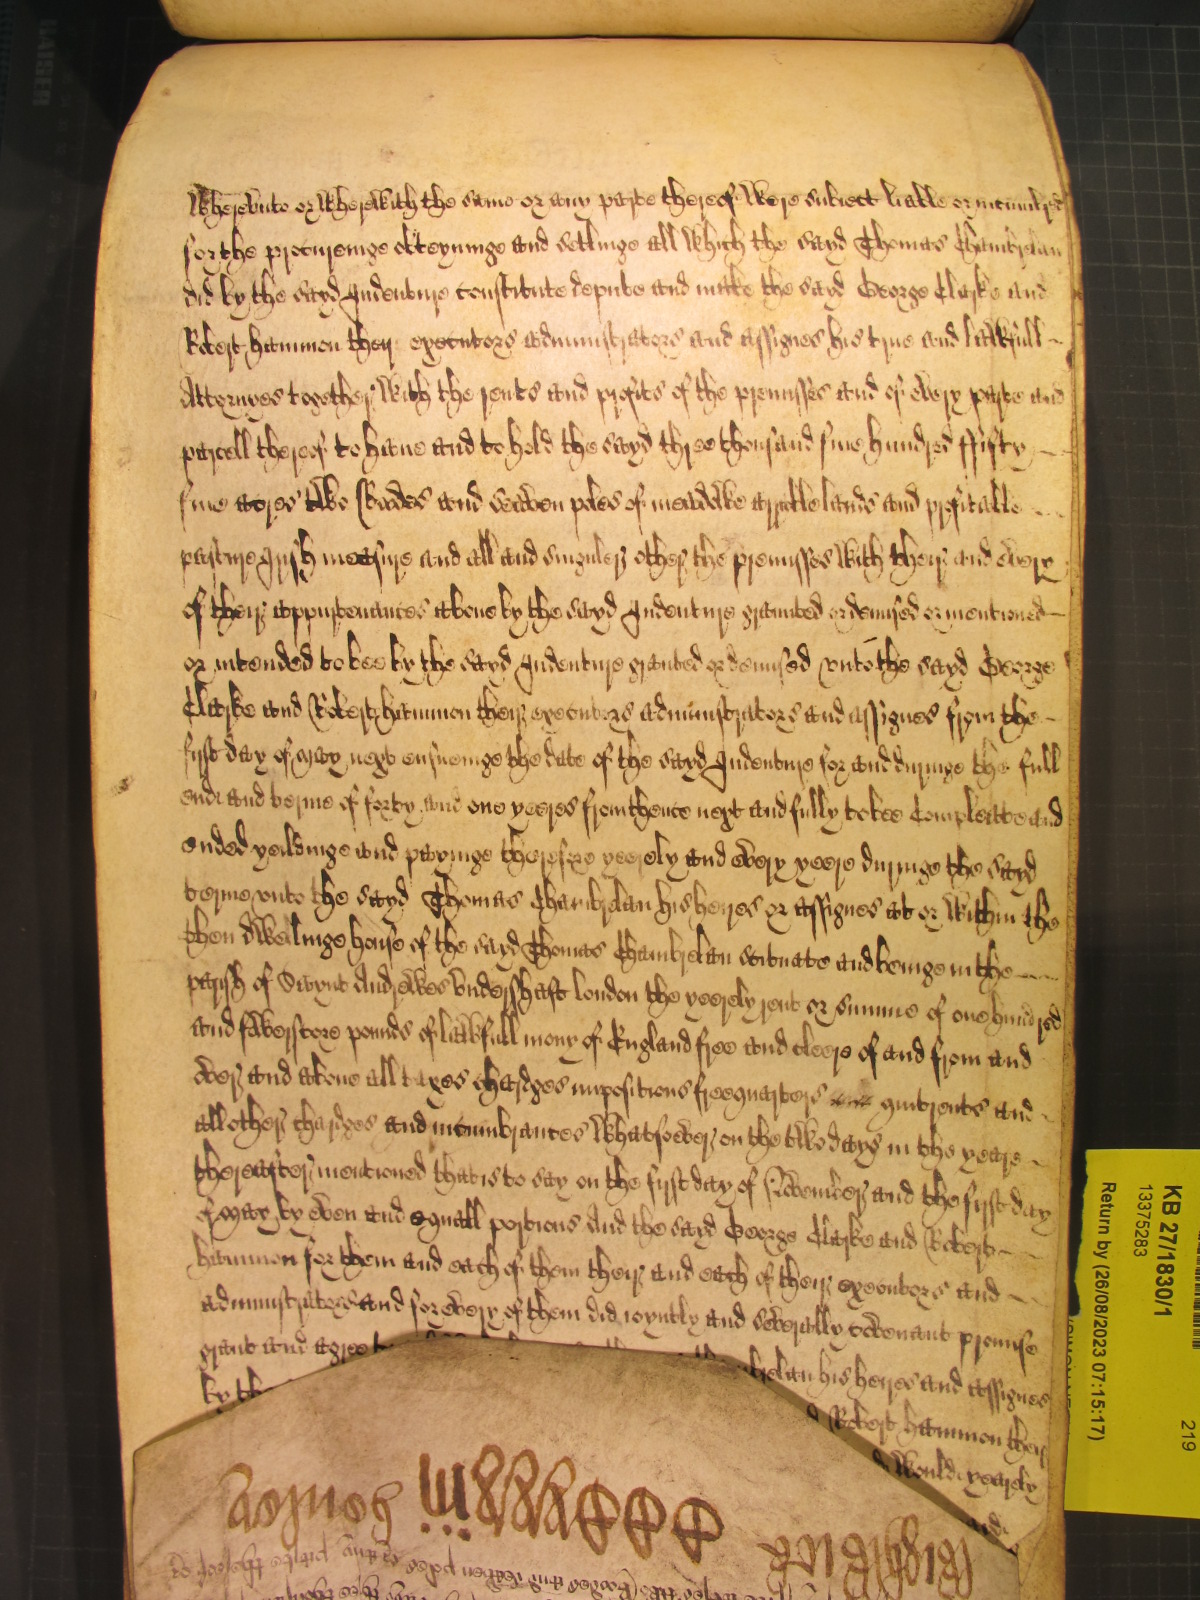 Wherevnto or wherewith the same or any parte thereof were subiect liable or incumbred
for the procureinge obteyninge and setlinge all which the sayd Thomas Chambrelan
did by the sayd Indenture constitute depute and make the sayd George Clarke and
Robert Hammon their executors administrators and assignes his true and lawfull
Attornyes together with the rents and profits of the premisses and of every parte and
parcell thereof to haue and to hold the sayd three thousand fiue hundred ffifty
fiue acres two Roodes and seaven poles of meadowe arrable lands and profitable
pasture Irish measure and all and singuler other the premisses with their and every
of their appurtenances aboue by the sayd Indenture graunted or demised or mentioned
or intended to bee by the sayd Indenture granted or demised vnto the sayd George
Clarke and Robert Hammon their executors administrators and assignes from the
first day of May next ensueinge the date of the sayd Indenture for and duringe the full
end and terme of forty and one yeeres from thence next and fully to bee Compleate and
ended yeildinge and payinge therefore yeerely and every yeere duringe the sayd
terme vnto the sayd Thomas Chambrelan his heires or assignes at or within the
then dwellinge house of the sayd Thomas Chambrelan scituate and beinge in the
parish of Saynt Andrewes Vndershaft London the yeerely rent or summe of one hundred
and fowerscore pounds of lawfull mony of England free and cleere of and from and
over and aboue all taxes chardges impositions freequarters quitrents and
all other chardges and incumbrances whatsoever on the two days in the yeare
thereafter mentioned that is to say on the first day of November and the first day
of May by even and equall portions And the sayd George Clarke and Robert
Hammon for them and each of them their and each of their executors and
administrators and for every of them did ioyntly and severally covenant promise
grant and agree to brelan his heires and assignes
by the Robert Hammon their
would yeerely
and
KB 27/1830/1
13375283
219
Return by (26/08/2023 07:15:17)